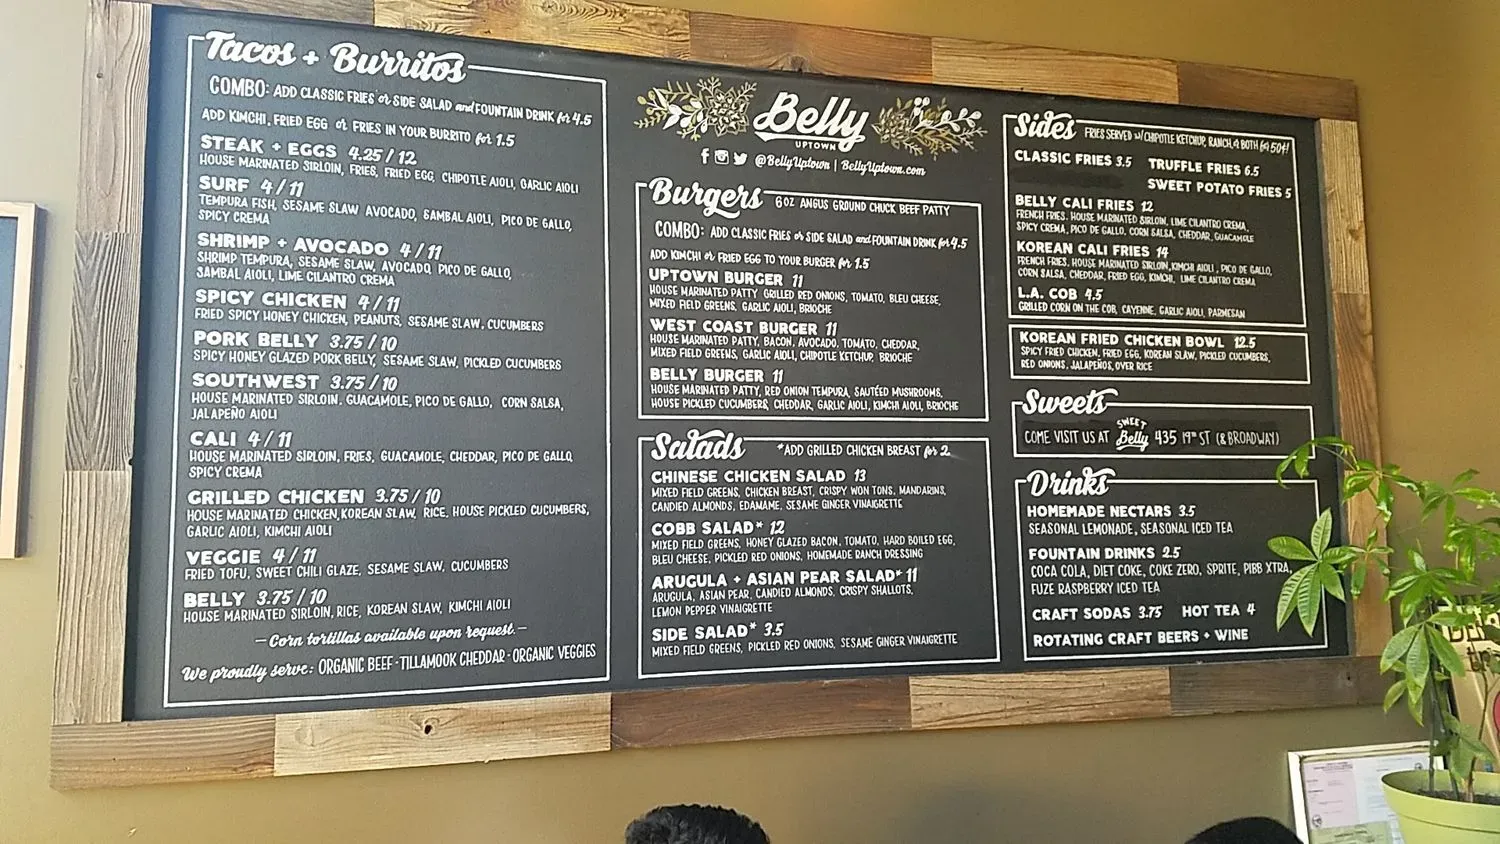 Tacos + Burritos
COMBO: ADD CLASSIC FRIES or SIDE SALAD and FOUNTAIN DRINK for 4.5
ADD KIMCHI, FRIED EGG or FRIES IN YOUR BURRITO for 1.5
STEAK + EGGS 4.25 / 12
HOUSE MARINATED SIRLOIN, FRIES, FRIED EGG, CHIPOTLE AIOLI, GARLIC AIOLI
SURF 4 / 11
TEMPURA FISH, SESAME SLAW AVOCADO, SAMBAL AIOLI, PICO DE GALLO,
SPICY CREMA
SHRIMP + AVOCADO 4 / 11
SHRIMP TEMPURA, SESAME SLAW, AVOCADO, PICO DE GALLO,
SAMBAL AIOLI, LIME CILANTRO CREMA
SPICY CHICKEN 4 / 11
FRIED SPICY HONEY CHICKEN, PEANUTS, SESAME SLAW, CUCUMBERS
PORK BELLY 3.75 / 10
SPICY HONEY GLAZED PORK BELLY, SESAME SLAW, PICKLED CUCUMBERS
SOUTHWEST 3.75 / 10
HOUSE MARINATED SIRLOIN, GUACAMOLE, PICO DE GALLO, CORN SALSA,
JALAPEÑO AIOLI
CALI 4 / 11
HOUSE MARINATED SIRLOIN, FRIES, GUACAMOLE, CHEDDAR, PICO DE GALLO,
SPICY CREMA
GRILLED CHICKEN 3.75 / 10
HOUSE MARINATED CHICKEN, KOREAN SLAW, RICE, HOUSE PICKLED CUCUMBERS,
GARLIC AIOLI, KIMCHI AIOLI
VEGGIE 4 / 11
FRIED TOFU, SWEET CHILI GLAZE, SESAME SLAW, CUCUMBERS
BELLY 3.75 / 10
HOUSE MARINATED SIRLOIN, RICE, KOREAN SLAW, KIMCHI AIOLI
- Corn tortillas available upon request. -
We proudly serve: ORGANIC BEEF - TILLAMOOK CHEDDAR - ORGANIC VEGGIES
Belly
UPTOWN
@BellyUptown | BellyUptown.com
Burgers 6 OZ ANGUS GROUND CHUCK BEEF PATTY
COMBO: ADD CLASSIC FRIES or SIDE SALAD and FOUNTAIN DRINK for 4.5
ADD KIMCHI or FRIED EGG TO YOUR BURGER for 1.5
UPTOWN BURGER 11
HOUSE MARINATED PATTY GRILLED RED ONIONS, TOMATO, BLEU CHEESE,
MIXED FIELD GREENS, GARLIC AIOLI, BRIOCHE
WEST COAST BURGER 11
HOUSE MARINATED PATTY, BACON, AVOCADO, TOMATO, CHEDDAR,
MIXED FIELD GREENS, GARLIC AIOLI, CHIPOTLE KETCHUP, BRIOCHE
BELLY BURGER 11
HOUSE MARINATED PATTY, RED ONION TEMPURA, SAUTÉED MUSHROOMS,
HOUSE PICKLED CUCUMBERS, CHEDDAR, GARLIC AIOLI, KIMCHI AIOLI, BRIOCHE
Salads *ADD GRILLED CHICKEN BREAST for 2
CHINESE CHICKEN SALAD 13
MIXED FIELD GREENS, CHICKEN BREAST, CRISPY WON TONS, MANDARINS,
CANDIED ALMONDS, EDAMAME, SESAME GINGER VINAIGRETTE
COBB SALAD* 12
MIXED FIELD GREENS, HONEY GLAZED BACON, TOMATO, HARD BOILED EGG,
BLEU CHEESE, PICKLED RED ONIONS, HOMEMADE RANCH DRESSING
ARUGULA + ASIAN PEAR SALAD* 11
ARUGULA, ASIAN PEAR, CANDIED ALMONDS, CRISPY SHALLOTS,
LEMON PEPPER VINAIGRETTE
SIDE SALAD* 3.5
MIXED FIELD GREENS, PICKLED RED ONIONS, SESAME GINGER VINAIGRETTE
Sides FRIES SERVED w/ CHIPOTLE KETCHUP, RANCH, or BOTH for 50¢!
CLASSIC FRIES 3.5 TRUFFLE FRIES 6.5
SWEET POTATO FRIES 5
BELLY CALI FRIES 12
FRENCH FRIES, HOUSE MARINATED SIRLOIN, LIME CILANTRO CREMA,
SPICY CREMA, PICO DE GALLO, CORN SALSA, CHEDDAR, GUACAMOLE
KOREAN CALI FRIES 14
FRENCH FRIES, HOUSE MARINATED SIRLOIN, KIMCHI AIOLI, PICO DE GALLO,
CORN SALSA, CHEDDAR, FRIED EGG, KIMCHI, LIME CILANTRO CREMA
L.A. COB 4.5
GRILLED CORN ON THE COB, CAYENNE, GARLIC AIOLI, PARMESAN
KOREAN FRIED CHICKEN BOWL 12.5
SPICY FRIED CHICKEN, FRIED EGG, KOREAN SLAW, PICKLED CUCUMBERS,
RED ONIONS, JALAPEÑOS, OVER RICE
Sweets
COME VISIT US AT SWEET Belly 435 19TH ST (& BROADWAY)
Drinks
HOMEMADE NECTARS 3.5
SEASONAL LEMONADE, SEASONAL ICED TEA
FOUNTAIN DRINKS 2.5
COCA COLA, DIET COKE, COKE ZERO, SPRITE, PIBB XTRA,
FUZE RASPBERRY ICED TEA
CRAFT SODAS 3.75 HOT TEA 4
ROTATING CRAFT BEERS + WINE